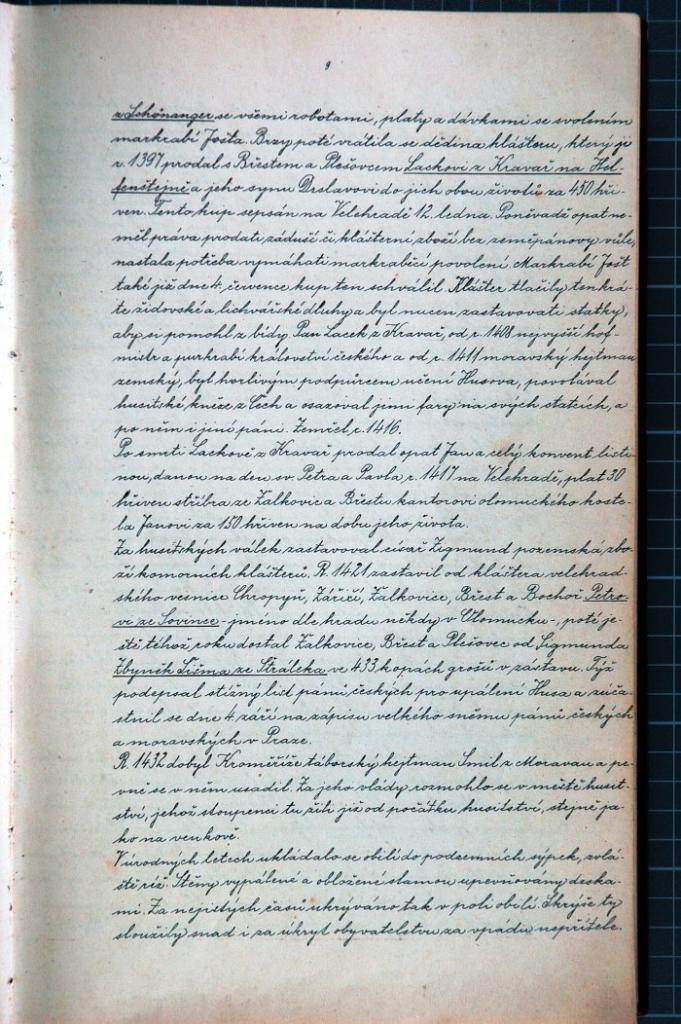 9
z Schönanger se všemi robotami, platy a dávkami se svolením
markrabí Jošta. Brzy poté vrátila se dědina klášteru, který ji
r. 1397 prodal s Břestem a Plešovcem Lackovi z Kravař na Hel-
fenštejně a jeho synu Drslavovi do jich obou životů za 450 hři-
ven. Tento kup sepsán na Velehradě 12. ledna. Poněvadž opat ne-
měl práva prodati záduší či klášterní zboží bez zeměpánovy vůle,
nastala potřeba vymáhati markraběcí povolení. Markrabí Jošt
také již dne 4. července kup ten schválil. Klášter tlačily tenkrá-
te židovské a lichvářské dluhy a byl nucen zastavovati statky,
aby si pomohl z bídy. Pan Lacek z Kravař, od r. 1408 nejvyšší hof-
mistr a purkrabí království českého a od r. 1411 moravský hejtman
zemský, byl horlivým podpůrcem učení Husova, povolával
husitské kněze z Čech a osazoval jimi fary na svých statcích, a
po něm i jiní páni. Zemřel r. 1416.
Po smrti Lackově z Kravař prodal opat Jan a celý konvent listi-
nou, danou na den sv. Petra a Pavla r. 1417 na Velehradě, plat 30
hřiven stříbra ze Žalkovic a Břestu kantorovi olomuckého koste-
la Janovi za 150 hřiven na dobu jeho života.
Za husitských válek zastavoval císař Zigmund pozemská zbo-
ží komorních klášterů. R. 1421 zastavil od kláštera velehrad-
ského vesnice Chropyň, Záříčí, Žalkovice, Břest a Bochoř Petro-
vi ze Sovince - jméno dle hradu někdy v Olomucku -, poté je-
ště téhož roku dostal Žalkovice, Břest a Plešovec od Sigmunda
Zbyněk Tišma ze Strálcka ve 433 kopách grošů v zástavu. Týž
podepsal stížný list pánů českých pro upálení Husa a zúča-
stnil se dne 4. září na zápisu velkého sněmu pánů českých
a moravských v Praze.
R. 1432 dobyl Kroměříže táborský hejtman Smil z Moravan a pe-
vně se v něm usadil. Za jeho vlády rozmohlo se v městě husit-
ství, jehož stoupenci tu žili již od počátku husitství, stejně ja-
ko na venkově.
V úrodných letech ukládalo se obilí do podzemních sýpek, zvlá-
ště rež. Stěny vypálené a obložené slamou upevňovány deska-
mi. Za nejistých časů ukrýváno tak v poli obilí. Skrýše ty
sloužily snad i za úkryt obyvatelstvu za vpádu nepřítele.